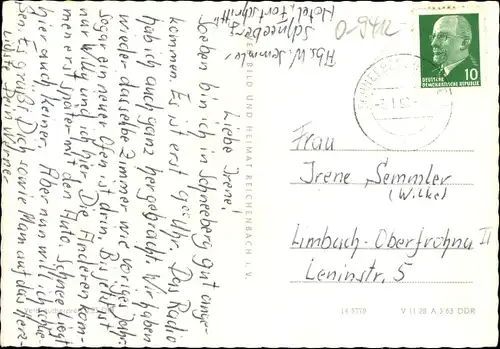 Abs. W. Semmler
Schneeberg
Hotel „Fortschritt"
O-9412
DEUTSCHE
DEMOKRATISCHE REPUBLIK
10
Liebe Irene!
Soeben bin ich in Schneeberg gut ange-
kommen. Es ist erst Uhr. Das Radio
hab ich auch ganz hergebracht. Wir haben
wieder dasselbe Zimmer wie voriges Jahr.
Sogar ein neuer Ofen ist drin. Bis jetzt ist
nur Willy und ich hier. Die Anderen kom-
men erst später mit den Auto. Schnee liegt
hier auch keiner. Aber nun will ich schlie-
ßen. Es grüßt Dich sowie Mam auf das Herz-
lichste Dein Werner
BILD UND HEIMAT REICHENBACH I. V.
Frau
Irene Semmler
(Wilke)
Limbach-Oberfrohna II
Leninstr. 5
V 11 28 A 5/63 DDR